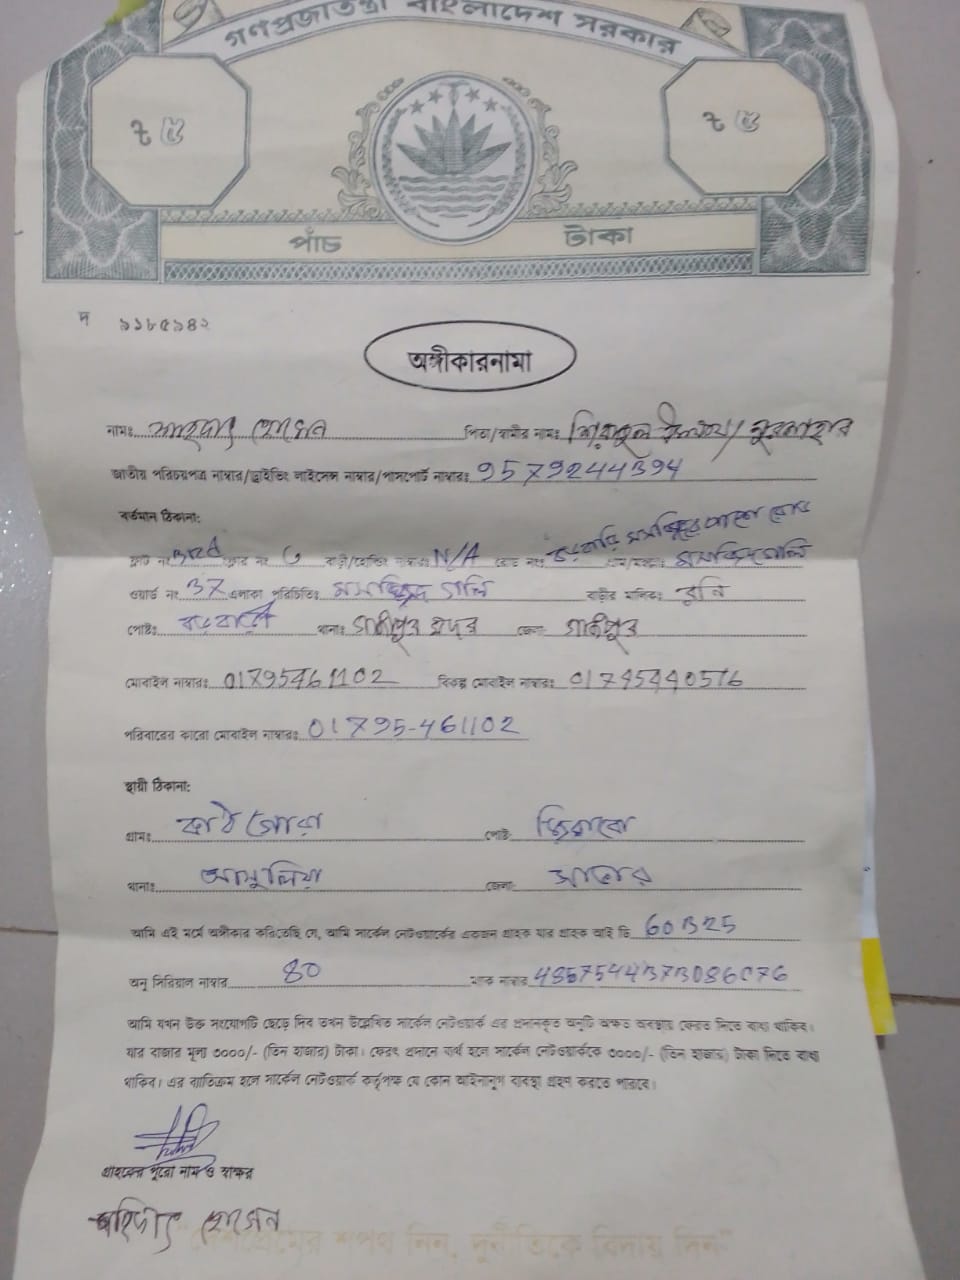 গণপ্রজাতন্ত্রী বাংলাদেশ সরকার
৳ ৫ ৳ ৫
পাঁচ টাকা
দ ৯১৮৫৯৪২
অঙ্গীকারনামা
নামঃ হোসেন পিতা/স্বামীর নামঃ / নুরজাহান
জাতীয় পরিচয়পত্র নাম্বার/ড্রাইভিং লাইসেন্স নাম্বার/পাসপোর্ট নাম্বারঃ 9579244394
বর্তমান ঠিকানা:
ফ্লাট নং 3rd ফ্লোর নং বাড়ী/হোল্ডিং নাম্বারঃ N/A রোড নংঃ গ্রাম/মহল্লাঃ মসজিদ গলি
ওয়ার্ড নং 37 এলাকা পরিচিতিঃ মসজিদ গলি বাড়ীর মালিকঃ
পোষ্টঃ থানাঃ গাজীপুর সদর জেলাঃ গাজীপুর
মোবাইল নাম্বারঃ 01795461102 বিকল্প মোবাইল নাম্বারঃ 01745440576
পরিবারের কারো মোবাইল নাম্বারঃ 01795-461102
স্থায়ী ঠিকানা:
গ্রামঃ কাঠগোরা পোষ্টঃ জিরাবো
থানাঃ আসুলিয়া জেলাঃ সাভার
আমি এই মর্মে অঙ্গীকার করিতেছি যে, আমি সার্কেল নেটওয়ার্কের একজন গ্রাহক যার গ্রাহক আই ডি 60B25
অনু সিরিয়াল নাম্বার 80 ম্যাক নাম্বার
আমি যখন উক্ত সংযোগটি ছেড়ে দিব তখন উল্লেখিত সার্কেল নেটওয়ার্ক এর প্রদানকৃত অনুটি অক্ষত অবস্থায় ফেরত দিতে বাধ্য থাকিব।
যার বাজার মূল্য ৩০০০/- (তিন হাজার) টাকা। ফেরৎ প্রদানে ব্যর্থ হলে সার্কেল নেটওয়ার্ককে ৩০০০/- (তিন হাজার) টাকা দিতে বাধ্য
থাকিব। এর ব্যতিক্রম হলে সার্কেল নেটওয়ার্ক কর্তৃপক্ষ যে কোন আইনানুগ ব্যবস্থা গ্রহণ করতে পারবে।
গ্রাহকের পুরো নাম ও স্বাক্ষর
হোসেন
"দেশপ্রেমের শপথ নিন, দুর্নীতিকে বিদায় দিন"